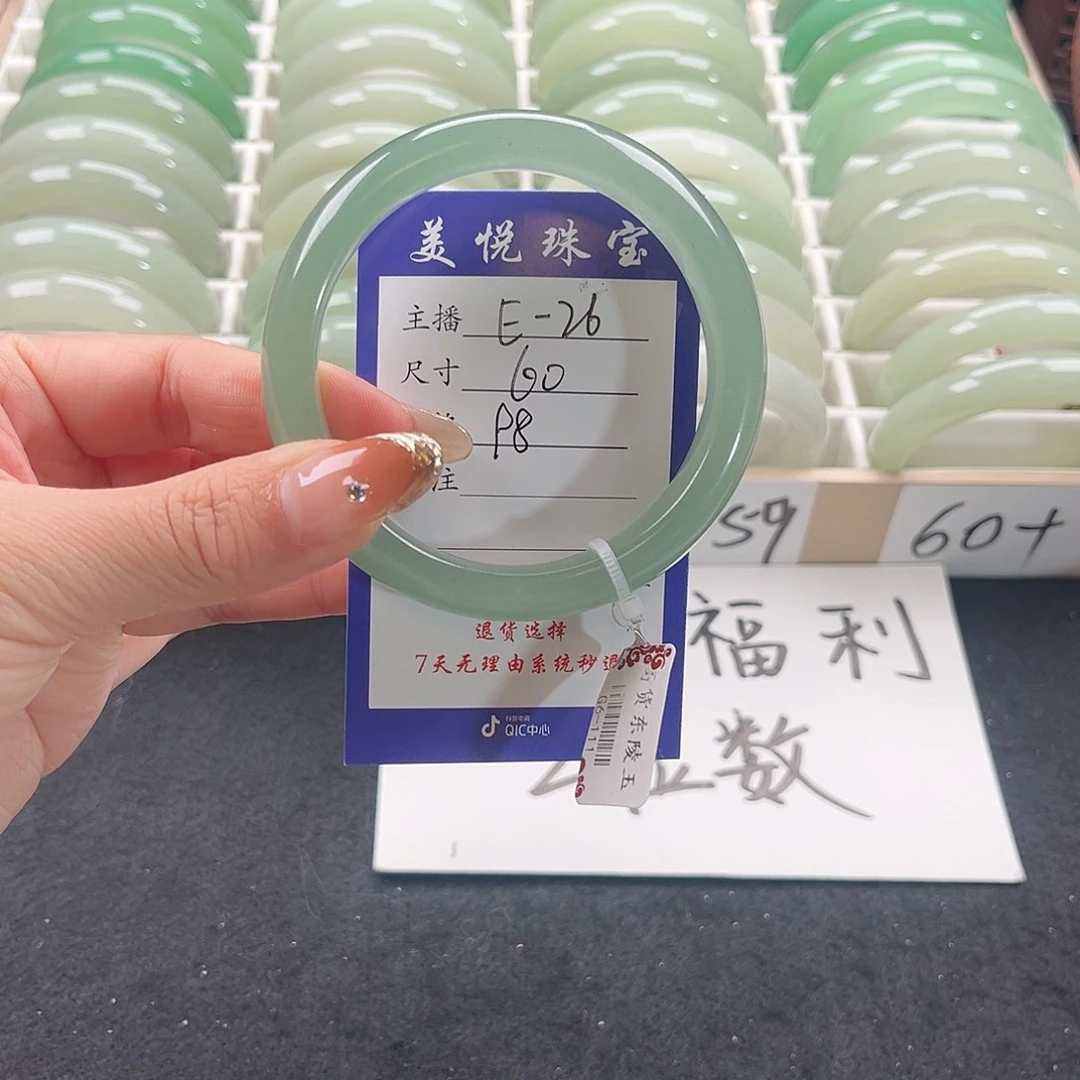 美悦珠宝
主播 E-26
尺寸 60
P8
注
退货选择
7天无理由系统秒退
抖音电商
QIC中心
货东陵玉
G6-111
59
60+
福利
数